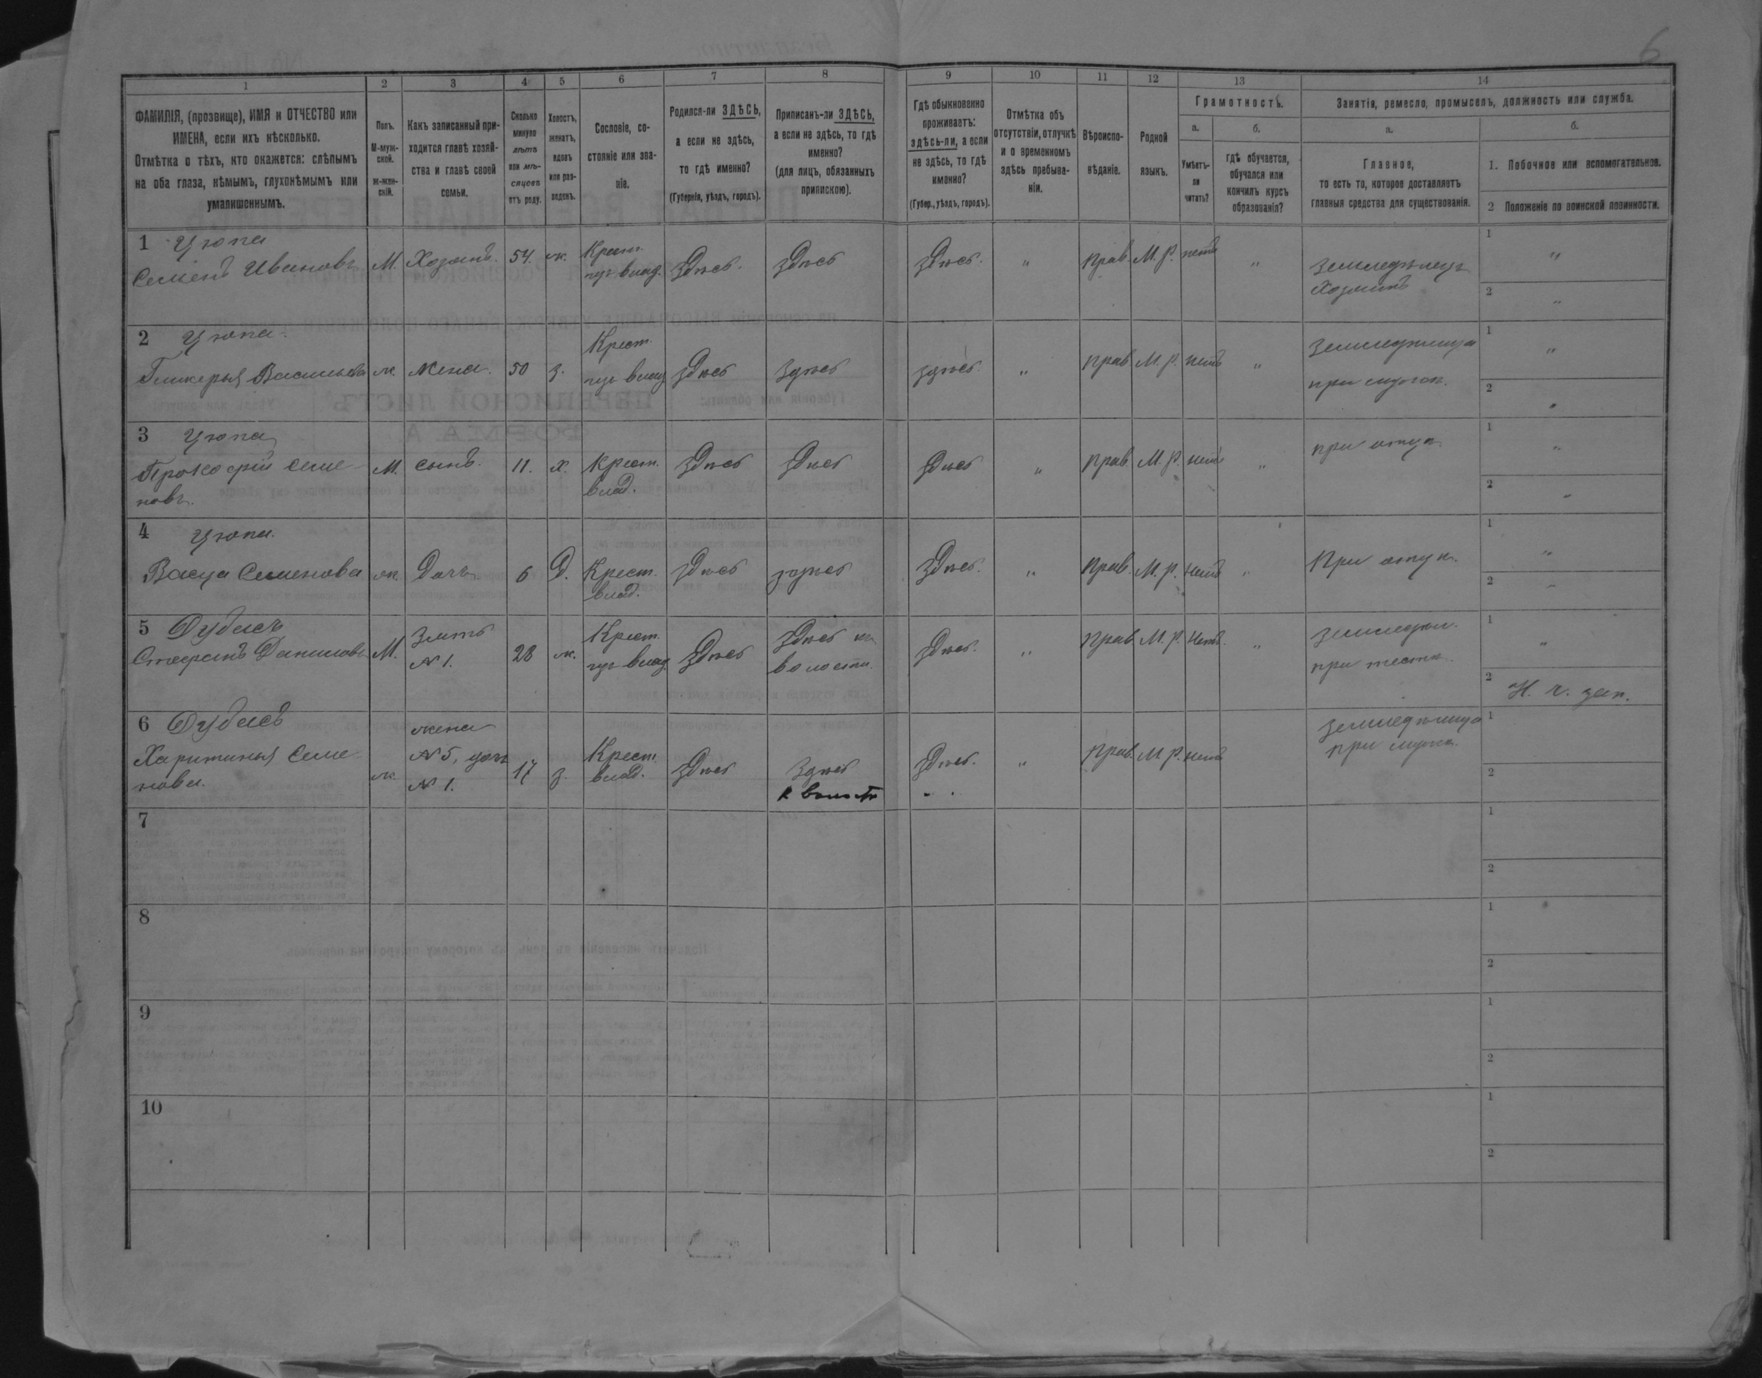 6
1 2 3 4 5 6 7 8 9 10 11 12 13 14
ФАМИЛІЯ, (прозвище), ИМЯ и ОТЧЕСТВО или
ИМЕНА, если ихъ нѣсколько.
Отмѣтка о тѣхъ, кто окажется: слѣпымъ
на оба глаза, нѣмымъ, глухонѣмымъ или
умалишеннымъ.
Полъ.
М-муж-
ской.
ж-жен-
скій.
Какъ записанный при-
ходится главѣ хозяй-
ства и главѣ своей
семьи.
Сколько
минуло
лѣтъ
или мѣ-
сяцевъ
отъ роду.
Холостъ,
женатъ,
вдовъ
или раз-
веденъ.
Сословіе, со-
стояніе или зва-
ніе.
Родился-ли ЗДѢСЬ,
а если не здѣсь,
то гдѣ именно?
(Губернія, уѣздъ, городъ).
Приписанъ-ли ЗДѢСЬ,
а если не здѣсь, то гдѣ
именно?
(для лицъ, обязанныхъ
припискою).
Гдѣ обыкновенно
проживаетъ:
здѣсь-ли, а если
не здѣсь, то гдѣ
именно?
(Губер., уѣздъ, городъ).
Отмѣтка объ
отсутствіи, отлучкѣ
и о временномъ
здѣсь пребыва-
ніи.
Вѣроиспо-
вѣданіе.
Родной
языкъ.
Грамотность.
а.
Умѣетъ-
ли
читать?
б.
гдѣ обучается,
обучался или
кончилъ курсъ
образованія?
Занятія, ремесло, промыселъ, должность или служба.
а.
Главное,
то есть то, которое доставляетъ
главныя средства для существованія.
б.
1. Побочное или вспомогательное.
2 Положеніе по воинской повинности.
1 Цюпа
Семенъ Ивановъ М. Хозяинъ. 54. ж. Крест. Здѣсь. Здѣсь Здѣсь. " Прав. М. Р. нетъ " земледѣлецъ
Хозяинъ
1 "
2 "
2 Цюпа.
Гликерья Васильева ж. жена. 50 з. Крест. Здѣсь Здѣсь здѣсь " Прав М. Р. нетъ " Земледѣлица
при
1 "
2 "
3 Цюпа
Прокофій Семе-
новъ. М. сынъ. 11. х. Крест.
влад. Здѣсь Здѣсь Здѣсь " Прав. М. Р. нетъ " при отцѣ
1 "
2 "
4 Цюпа.
Васса Семенова ж. Дочь 6 Д. Крест.
влад. Здѣсь здѣсь Здѣсь. " Прав. М. Р. нетъ " При отцѣ.
1 "
2 "
5 Дубасъ
Стефанъ Даниловъ М. Зять
№ 1. 28 ж. Крест. Здѣсь Здѣсь
волости Здѣсь. " Прав. М. Р. Нетъ. " земледѣл.
при тестѣ.
1 "
2 Н. ч. зап.
6 Дубасъ
Харитинья Семе-
нова. ж. жена
№ 5, дочь
№ 1. 17 з. Крест.
влад. Здѣсь Здѣсь
к волости Здѣсь. " Прав. М Р. нетъ земледѣлица
при мужѣ.
1
2
7
1
2
8
1
2
9
1
2
10
1
2